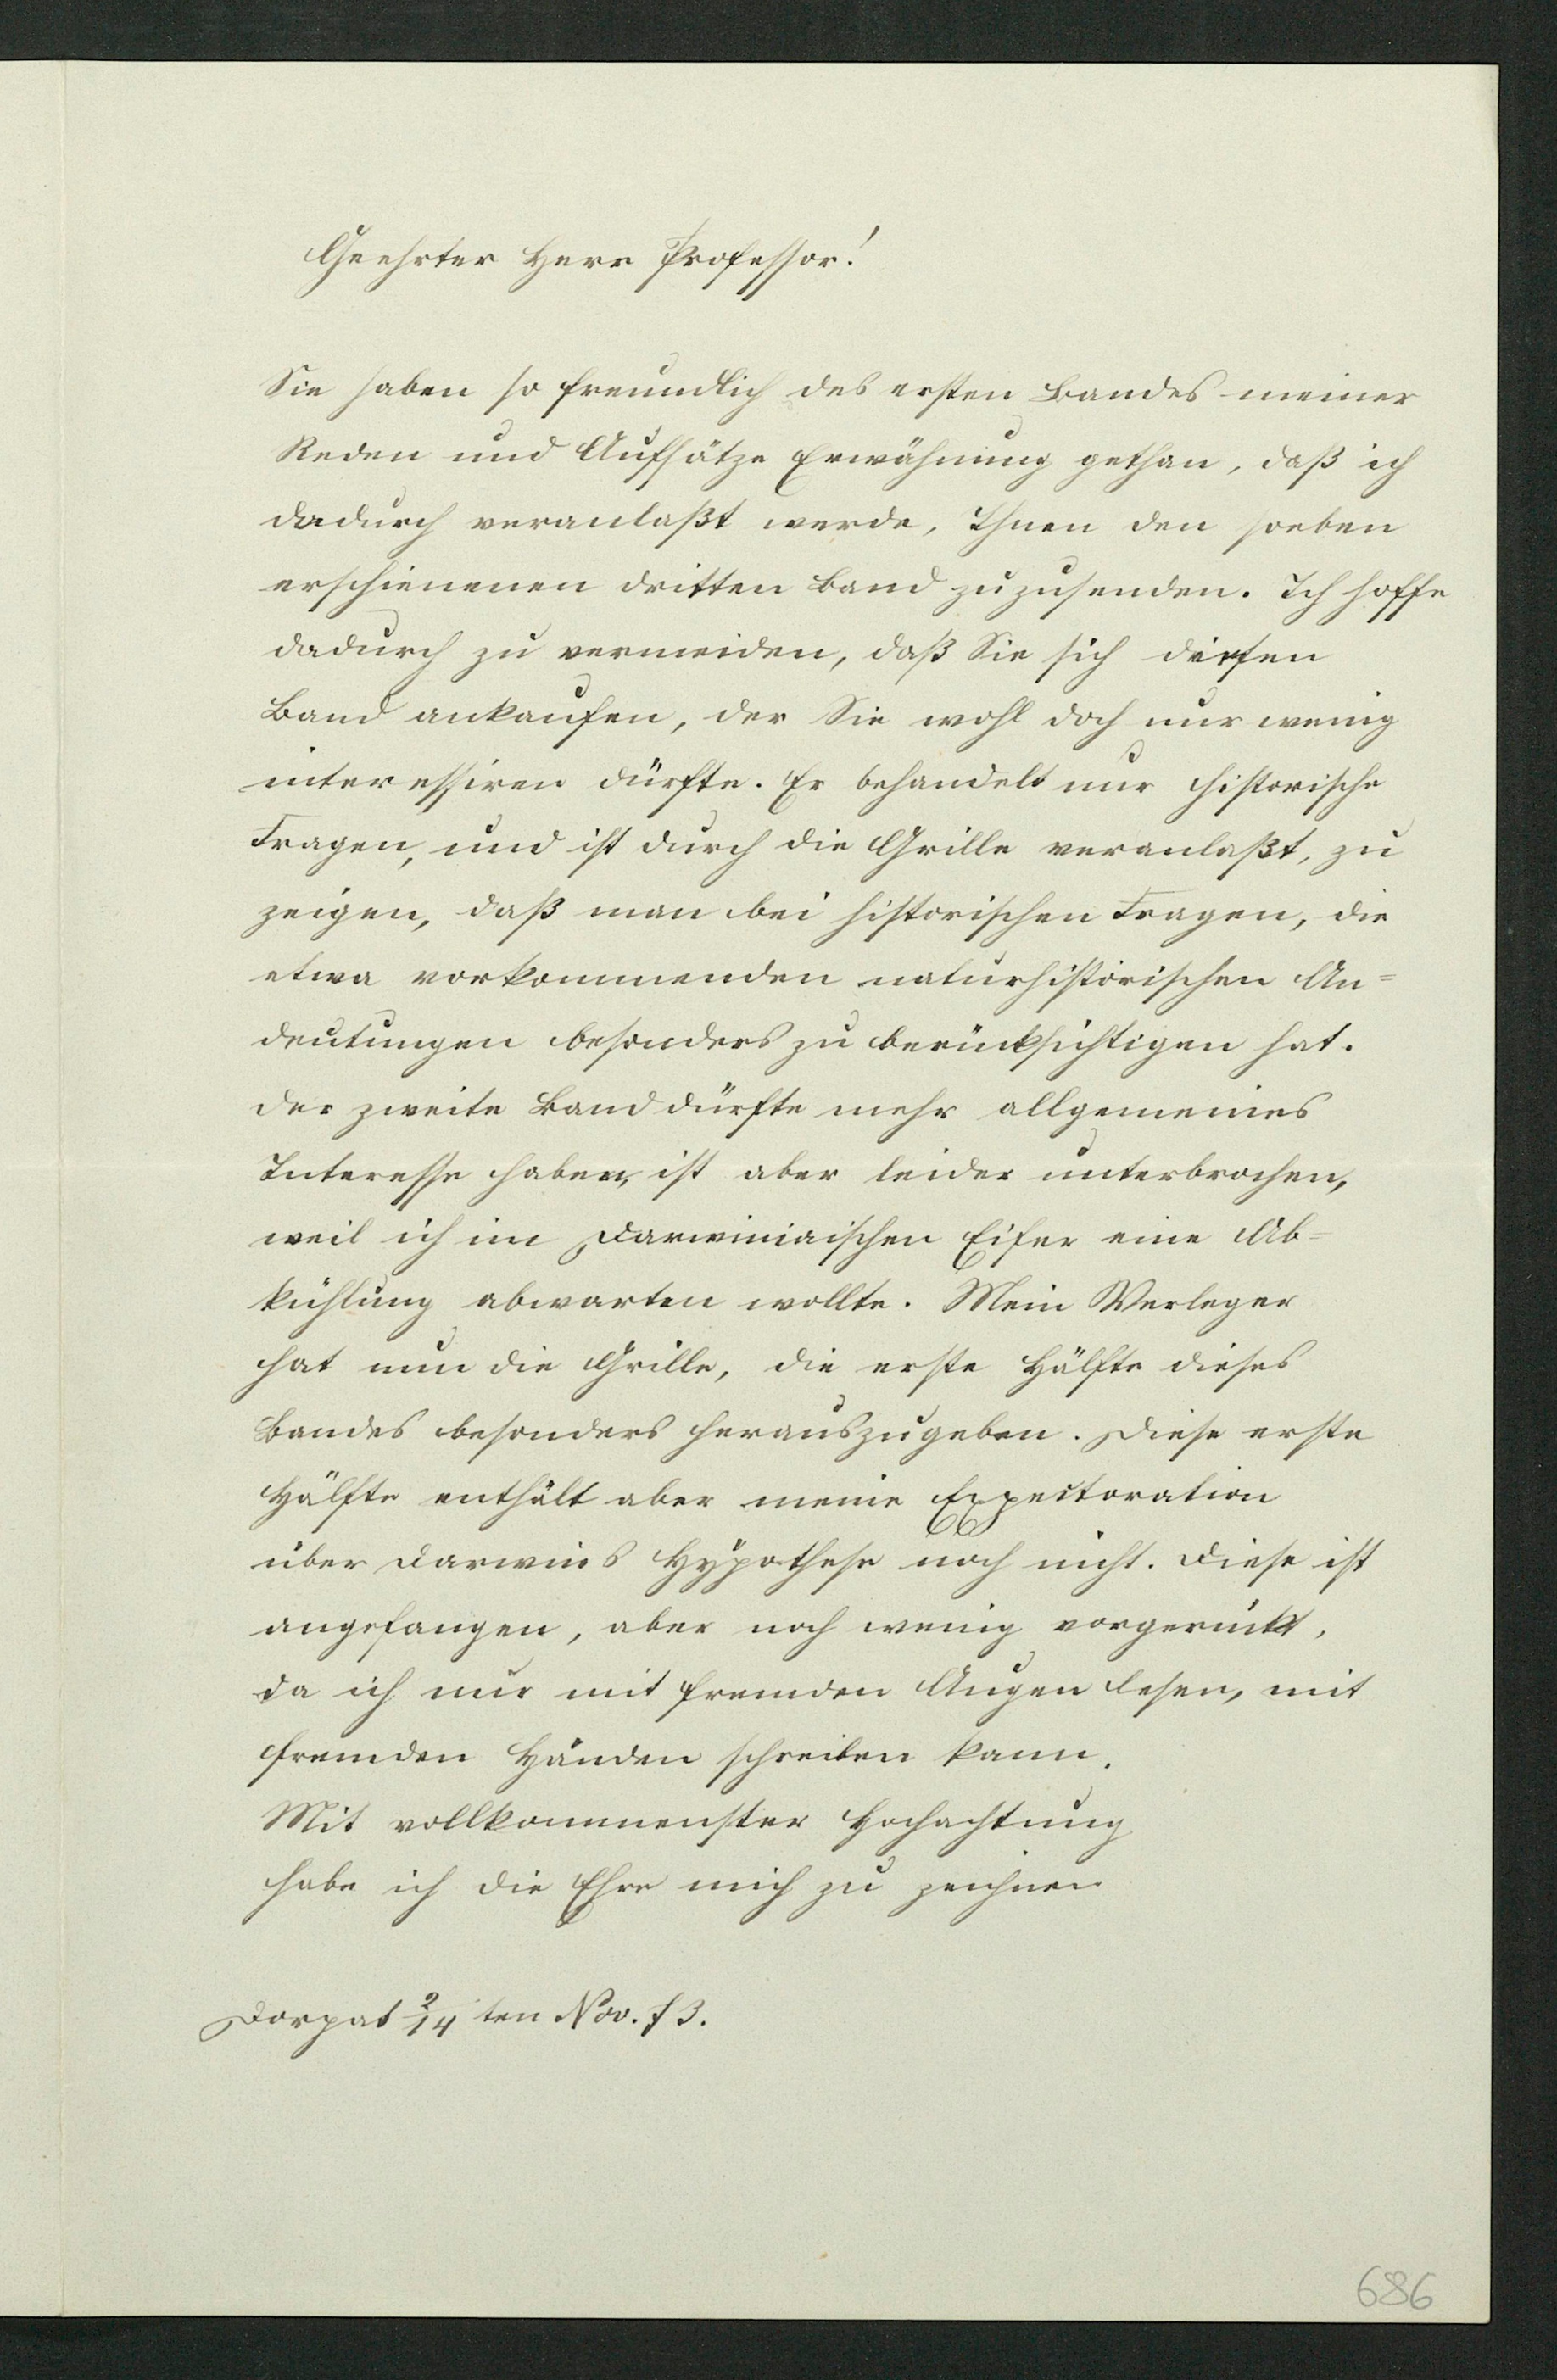 Geehrter Herr Professor!
Sie haben so freundlich des ersten Bandes meiner
Reden und Aufsätze Erwähnung gethan, daß ich
dadurch veranlaßt werde, Ihnen den soeben
erschienenen dritten Band zuzusenden. Ich hoffe
dadurch zu vermeiden, daß Sie sich diesen
Band ankaufen, der Sie wohl doch nur wenig
interessiren dürfte. Er behandelt nur historische
Fragen, und ist durch die Grille veranlaßt, zu
zeigen, daß man bei historischen Fragen, die
etwa vorkommenden naturhistorischen An=
deutungen besonders zu berücksichtigen hat.
Der zweite Band dürfte mehr allgemeines
Interesse haben, ist aber leider unterbrochen,
weil ich im Darwiniaischen Eifer eine Ab=
kühlung abwarten wollte. Mein Verleger
hat nun die Grille, die erste Hälfte dieses
Bandes besonders herauszugeben. Diese erste
Hälfte enthält aber meine Expectoration
über Darwins Hypothese noch nicht. Diese ist
angefangen, aber noch wenig vorgerückt,
da ich nur mit fremden Augen lesen, mit
fremden Händen schreiben kann.
Mit vollkommenster Hochachtung
habe ich die Ehre mich zu zeichnen
Dorpat 2/14 ten Nov. 73.
686